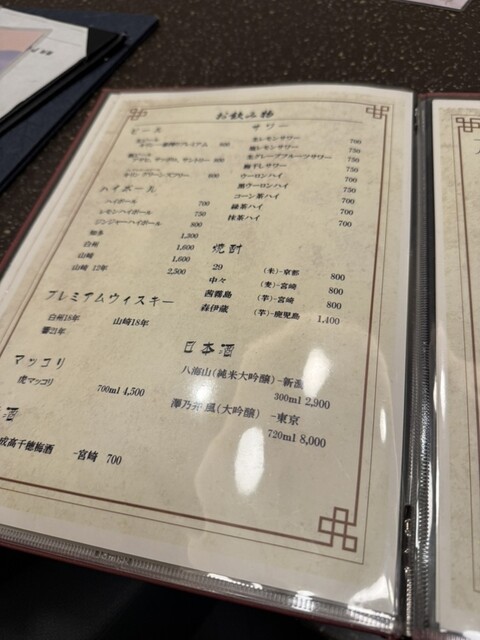 お飲み物
ビール
生ビール
プレミアム 900
瓶ビール
アサヒ、サッポロ、サントリー 800
ハイボール
ハイボール 700
レモンハイボール 750
ジンジャーハイボール 800
知多 1,300
白州 1,600
山崎 1,600
山崎 12年 2,500
プレミアムウィスキー
白州18年 山崎18年
響21年
マッコリ
虎マッコリ
700ml 4,500
酒
成高千穂梅酒 -宮崎 700
サワー
生レモンサワー 700
塩レモンサワー 750
生グレープフルーツサワー 750
梅干しサワー 750
ウーロンハイ 700
黒ウーロンハイ 750
コーン茶ハイ 700
緑茶ハイ 700
抹茶ハイ 700
焼酎
29 (米)-京都 800
中々 (麦)-宮崎 800
茜霧島 (芋)-宮崎 800
森伊蔵 (芋)-鹿児島 1,400
日本酒
八海山(純米大吟醸) -新潟
300ml 2,900
澤乃井 凰(大吟醸) -東京
720ml 8,000